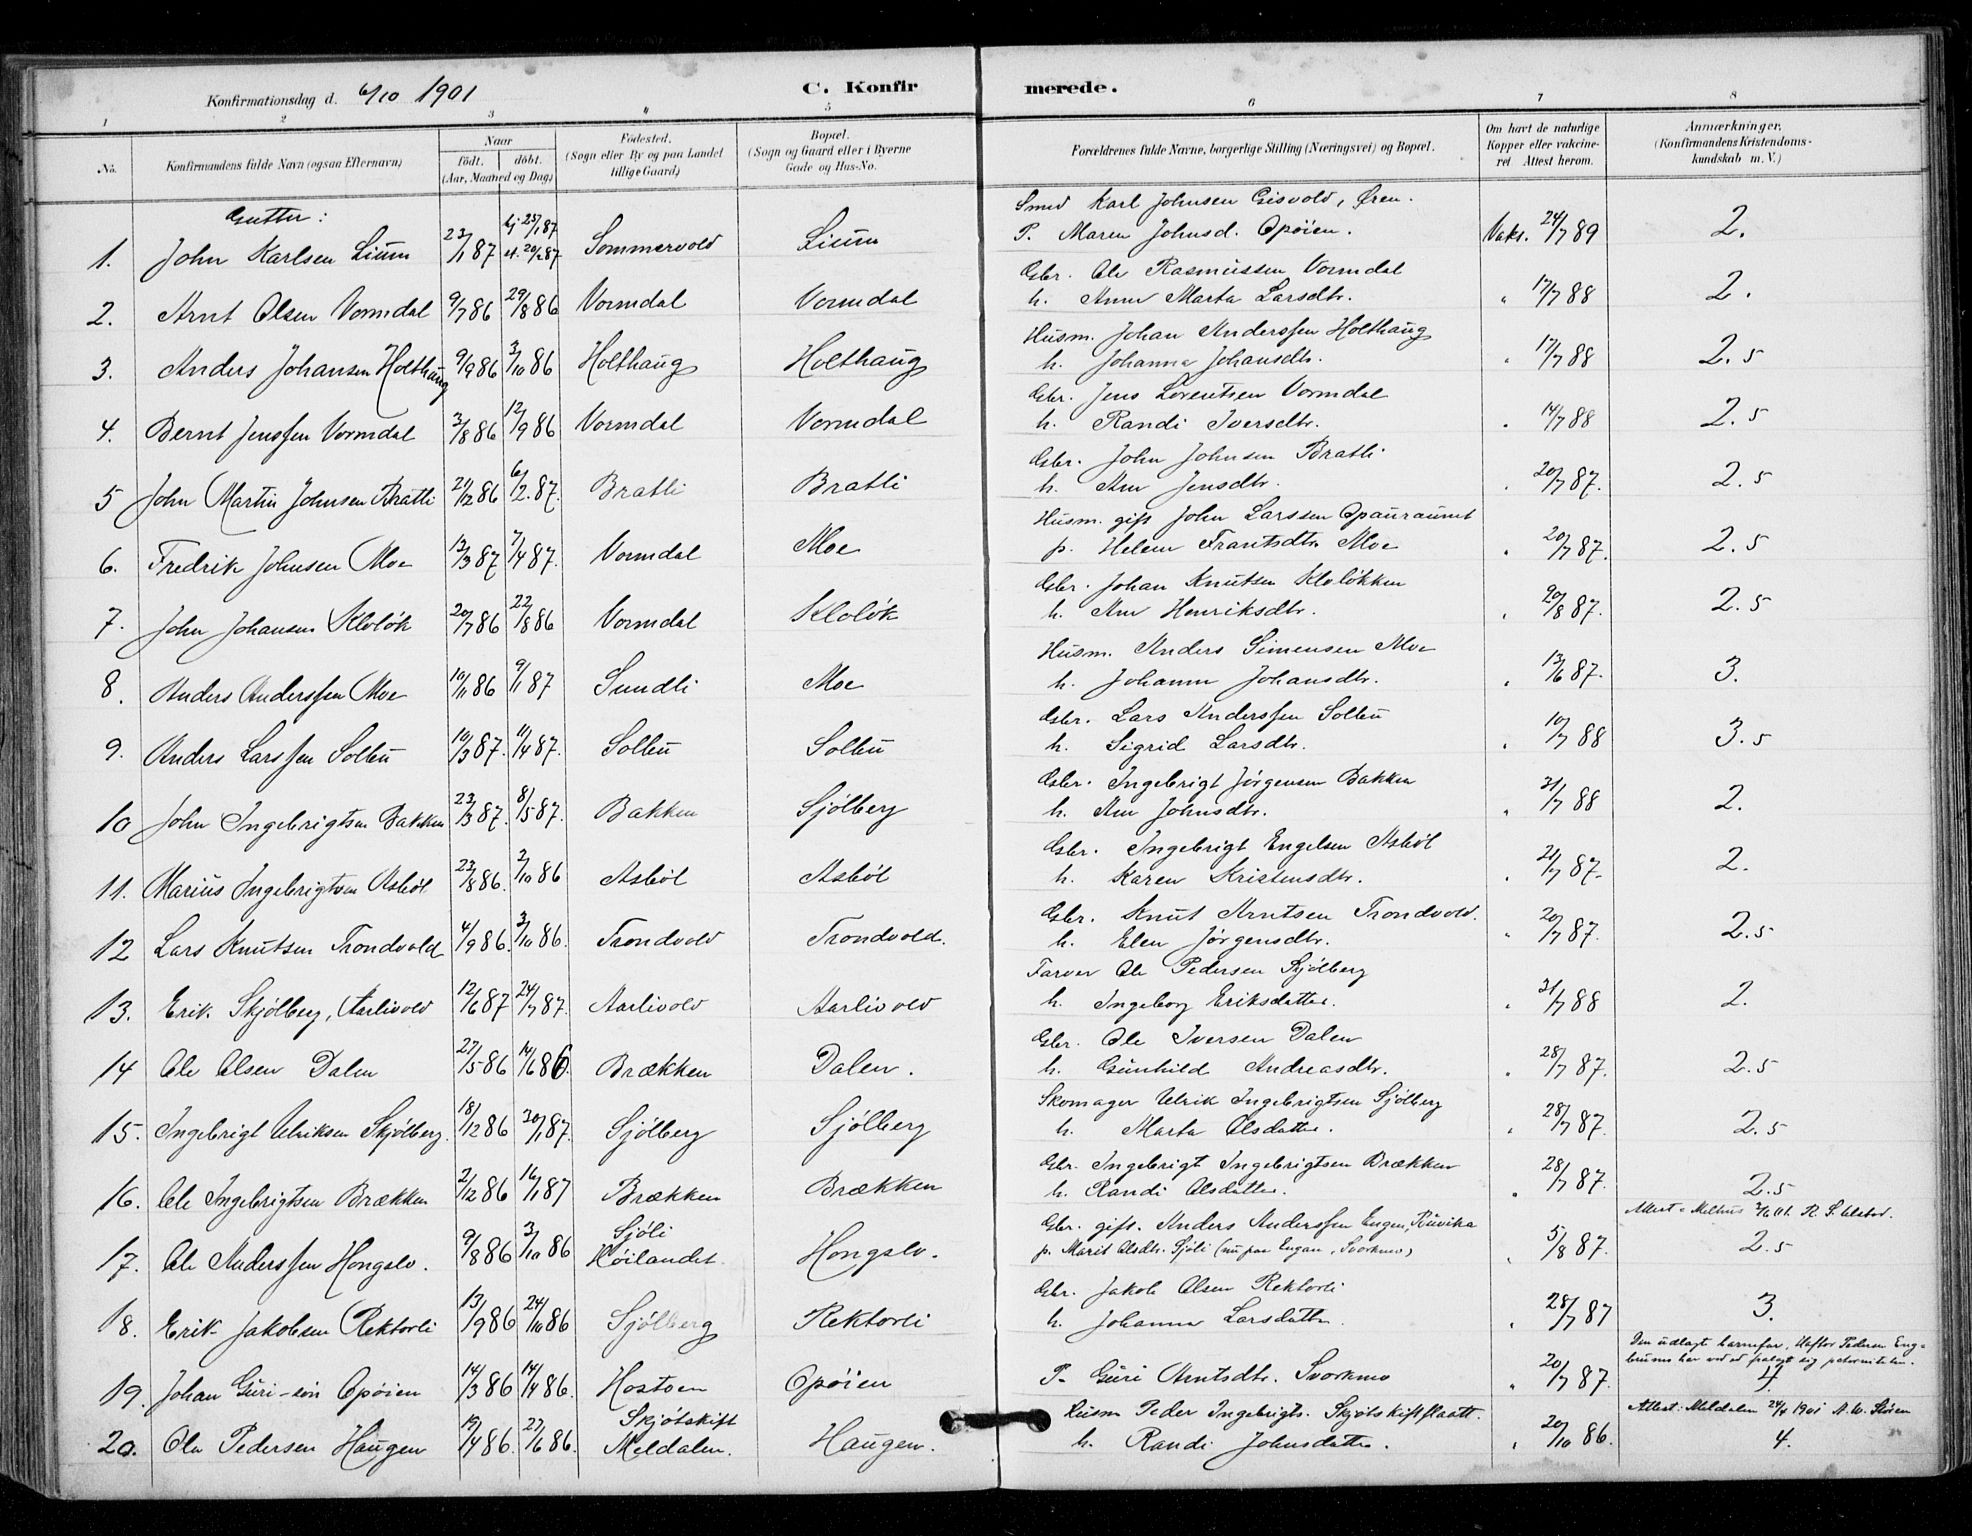 Konfirmationsdag d. 6/10 1901
C. Konfirmerede.
1 2 3 4 5 6 7 8
No. Konfirmandens fulde Navn (ogsaa Efternavn) Naar födt. döbt. (Aar, Maaned og Dag) Födested. (Sogn eller By og paa Landet tillige Gaard) Bopæl. (Sogn og Gaard eller i Byerne Gade og Hus-No. Forældrenes fulde Navne, borgerlige Stilling (Næringsvei) og Bopæl. Om havt de naturlige Kopper eller vakcineret Attest herom. Anmærkninger. (Konfirmandens Kristendomskundskab m. V.)
Gutter:
1. John Karlsen Lium 23/1 87 hj 23/1 87 st. 20/2 87 Sommervold Lium Smed Karl Johnsen Gisvold, Ören. P. Maren Johnsd. Opöien. Vaks. 24/7 89 2.
2. Arnt Olsen Vormdal 9/7 86 29/8 86 Vormdal Vormdal Gbr. Ole Rasmussen Vormdal h. Anne Marta Larsdtr. " 17/7 88 2.
3. Anders Johansen Holthaug 9/9 86 3/10 86 Holthaug Holthaug Husm. Johan Anderssen Holthaug h. Johanna Johansdtr. " 17/7 88 2.5
4. Bernt Jenssen Vormdal 3/8 86 12/9 86 Vormdal Vormdal Gbr. Jens Lorentsen Vormdal h. Randi Iversdtr. " 14/7 88 2.5
5 John Martin Johnsen Bratli 21/12 86 6/2 87. Bratli Bratli Gbr. John Johnsen Bratli h. Ane Jensdtr. " 20/7 87. 2.5
6. Fredrik Johnsen Moe 13/3 87 7/4 87. Vormdal Moe Husm. gift John Larssen Opauraunet p. Helene Frantsdtr. Moe " 20/7 87. 2.5
7. John Johansen Kleløk 20/7 86 22/8 86 Vormdal Kleløk Gbr. Johan Knutsen Kleløkken h. Ane Henriksdtr. " 20/8 87. 2.5
8. Anders Anderssen Moe 10/11 86 9/1 87 Sundli Moe Husm. Anders Simensen Moe h. Johanne Johansdtr. " 13/6 87. 3.
9. Anders Larssen Solbu 10/3 87. 11/4 87. Solbu Solbu Gbr. Lars Anderssen Solbu h. Sigrid Larsdtr. " 10/7 88 3.5
10 John Ingebrigtsen Bakken 23/3 87. 8/5 87. Bakken Sjölberg Gbr. Ingebrigt Jörgensen Bakken h. Ane Johnsdtr. " 31/7 88 2.
11. Marius Ingebrigtsen Asböl 23/8 86. 3/10 86 Asböl Asböl Gbr. Ingebrigt Engelsen Asböl h. Karen Kristensdtr. " 21/7 87. 2.
12 Lars Knutsen Trondvold 4/9 86. 3/10 86. Trondvold Trondvold. Gbr. Knut Arntsen Trondvold. h. Elen Jörgensdtr. " 20/7 87. 2.5
13. Erik Skjölberg, Aarlivold 12/6 87 24/7 87. Aarlivold Aarlivold Farver Ole Pedersen Sjölberg h. Ingeborg Eriksdatter. " 31/7 88 2.
14 Ole Olsen Dalen 27/5 86 14/6 86. Brækken Dalen. Gbr. Ole Iversen Dalen h. Gunhild Andreasdtr. " 28/7 87. 2.5
15. Ingebrigt Ulriksen Skjölberg. 18/12 86 30/1 87. Sjölberg Sjölberg Skomager Ulrik Ingebrigtsen Sjölberg h. Marta Olsdatter. " 28/7 87. 2.5
16. Ole Ingebrigtsen Brækken 2/12 86 16/1 87 Brækken Brækken Gbr. Ingebrigt Ingebrigtsen Brækken h. Randi Olsdatter. " 28/7 87. 2.5
17. Ole Anderssen Hongslo. 9/8 86 3/10 86 Sjöli Höilandet. Hongslo. Gbr. gift. Anders Anderssen Engen, Buvika p. Marit Olsdtr. Sjöli (nu paa Engan, Svorkmo) " 5/8 87. Attest: Melhus 01. 2.5
18. Erik Jakobsen Rektorli 13/9 86 24/10 86 Sjölberg Rektorli Gbr. Jakob Olsen Rektorli h. Johanna Larsdatter. " 28/7 87 3.
19. Johan Guri-sön Opöien 14/3 86 14/4 86. Hostoen Opöien P. Guri Arntsdtr. Svorkmo " 20/7 87. Den udlagte barnefar, Pedersen Engbruns har ved ed fralagt sig paterniteten. 4.
20. Ole Pedersen Haugen 19/4 86. 27/6 86. Skjötskift Meldalen. Haugen. Husm Peder Ingebrigts. Skjötskiftflaatt. h. Randi Johnsdatter. " 20/10 86. Attest: Meldalen 24/4 1901 4.